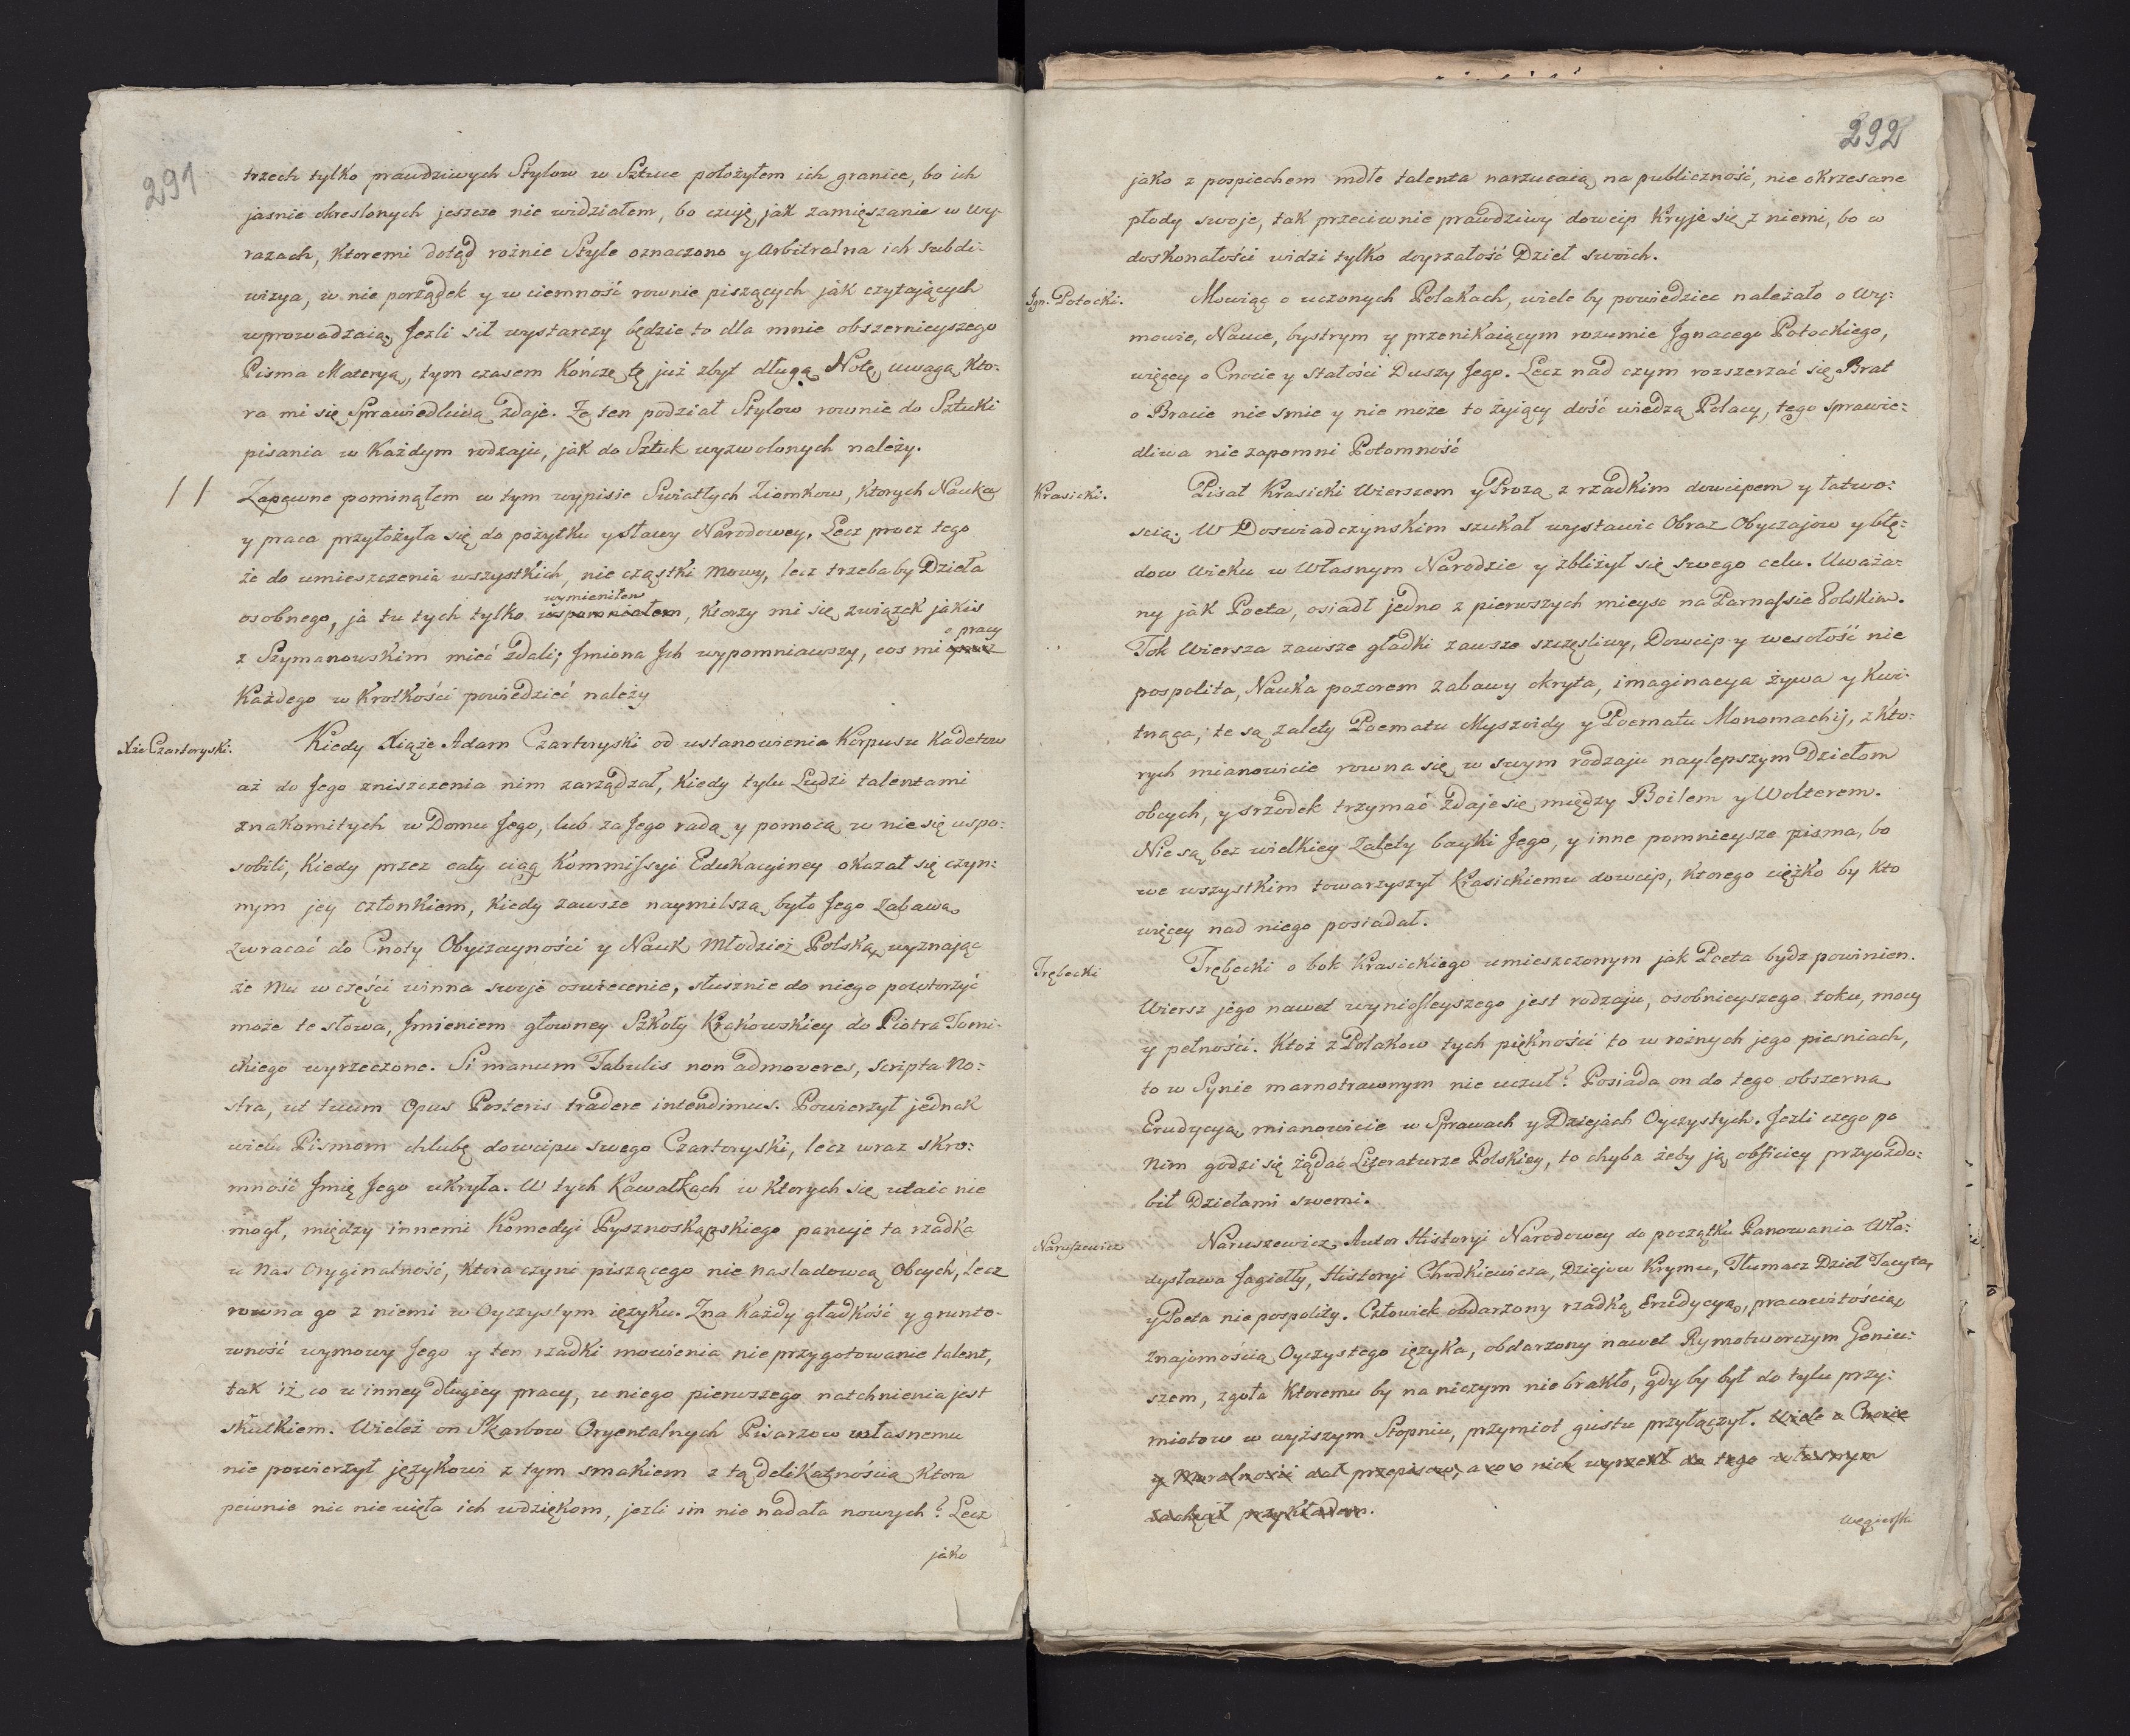 291
trzech tylko prawdziwych Stylow w Sztuce położyłem ich granice, bo ich
jasnie okreslonych jeszcze nie widziałem, bo czuję, jak zamięszanie w wy-
razach, ktoremi dotąd rożnie Style oznaczono y Arbitralna ich subdi-
wizya, w nie porządek y w ciemność rownie piszących jak czytających
wprowadzaią. Jezli sił wystarczy będzie to dla mnie obszernieyszego
Pisma Materyą, tym czasem kończę tę już zbyt długą Notę, uwagą kto-
ra mi się Sprawiedliwą zdaje. Że ten podział Stylow rownie do Sztuki
pisania w każdym rodzaju, jak do Sztuk wyzwolonych należy.
// Zapewne pominąłem w tym wypisie Swiatłych Ziomkow, ktorych Nauka
y praca przyłożyła się do pożytku y sławy Narodowey. Lecz procz tego
że do umieszczenia wszystkich, nie cząstki Mowy, lecz trzeba by Dzieła
wymieniłem
osobnego, ja tu tych tylko wspomniałem, ktorzy mi się związek jakis
o pracy
z Szymanowskim mieć zdali; Jmiona Jch wypomniawszy, cos mi
Każdego w krotkości powiedzieć należy
Xże Czartoryski.
Kiedy Xiąże Adam Czartoryski od ustanowienia Korpusu Kadetow
aż do Jego zniszczenia nim zarządzał, kiedy tylu Ludzi talentami
znakomitych w Domu Jego, lub za Jego radą y pomocą w nie się uspo-
sobili, kiedy przez cały ciąg Kommissyi Edukacyiney okazał się czyn-
nym jey członkiem, kiedy zawsze naymilszą było Jego zabawą
zwracać do Cnoty Obyczayności y Nauk Młodzież Polską, wyznając
że Mu w części winna swoje oswiecenie, słusznie do niego powtorzyć
może te słowa, Jmieniem głowney Szkoły Krakowskiey do Piotra Tomi-
ckiego wyrzeczone. Si manum Tabulis non admoveres, scripta no-
stra, ut tuum Opus Posteris tradere intendimus. Powierzył jednak
wielu Pismom chlubę dowcipu swego Czartoryski, lecz wraz skro-
mność Jmię Jego ukryła. W tych Kawałkach w ktorych się utaic nie
mogł, między innemi Komedyi Pysznoskąpskiego panuje ta rzadka
u nas Oryginalność, ktora czyni piszącego nie nasladowcą Obcych, lecz
rowna go z niemi w Oyczystym ięzyku. Zna każdy gładkość y grunto-
wność wymowy Jego y ten rzadki mowienia nie przygotowanie talent,
tak iż co u inney długiey pracy, u niego pierwszego natchnienia jest
skutkiem. Wieleż on Skarbow Oryentalnych Pisarzow własnemu
nie powierzył językowi z tym smakiem z tą delikatnością ktora
pewnie nic nie uięła ich wdziękom, jezli im nie nadała nowych? Lecz
jako
292
jako z pospiechem mdłe talenta narzucaią na publiczność, nie okrzesane
płody swoje, tak przeciwnie prawdziwy dowcip kryje się z niemi, bo w
doskonałości widzi tylko doyrzałość Dzieł swoich.
Jgn. Potocki.
Mowiąc o uczonych Polakach, wiele by powiedziec należało o Wy-
mowie, Nauce, bystrym y przenikaiącym rozumie Jgnacego Potockiego,
więcey o Cnocie y stałości Duszy Jego. Lecz nad czym rozszerzać się Brat
o Bracie nie smie y nie może to żyiący dość wiedzą Polacy, tego sprawie-
dliwa nie zapomni Potomność
Krasicki.
Pisał Krasicki Wierszem y Prozą z rzadkim dowcipem y łatwo-
scią. W Doswiadczynskim szukał wystawic Obraz Obyczajow y błę-
dow Wieku w Własnym Narodzie y zbliżył się swego celu. Uważa-
ny jak Poeta, osiadł jedno z pierwszych mieysc na Parnassie Polskim.
Tok Wiersza zawsze gładki zawsze szczęsliwy, Dowcip y wesołość nie
pospolita, Nauka pozorem zabawy okryta, imaginacya żywa y kwi-
tnąca; te są zalety Poematu Myszeidy y Poematu Monomachij, z kto-
rych mianowicie rowna się w swym rodzaju naylepszym Dziełom
obcych, y srzodek trzymać zdaje się między Boilem y Wolterem.
Nie są bez wielkiey zalety bayki Jego, y inne pomnieysze pisma, bo
we wszystkim towarzyszył Krasickiemu dowcip, ktorego ciężko by kto
więcey nad niego posiadał.
Trębecki
Trębecki o bok Krasickiego umieszczonym jak Poeta bydz powinien.
Wiersz jego nawet wyniosleyszego jest rodzaju, osobnieyszego toku, mocy
y pełności. Ktoż z Polakow tych piękności to w rożnych jego piesniach,
to w Synie marnotrawnym nie uczuł? Posiada on do tego obszerną
Erudycyą, mianowicie w Sprawach y Dziejach Oyczystych. Jezli czego po
Nim godzi się żądać Literaturze Polskiey, to chyba żeby ją obficiey przyozdo-
bił Dziełami swemi.
Naruszewicz
Naruszewicz, Autor Historyi Narodowey do początku Panowania Wła-
dysława Jagiełły, Historyi Chodkiewicza, Dziejow Krymu, Tłumacz Dzieł Tacyta,
y Poeta nie pospolity. Człowiek obdarzony rzadką Erudycyą, pracowitością,
znajomością Oyczystego ięzyka, obdarzony nawet Rymotworczym Geniu-
szem, zgoła ktoremu by na niczym nie brakło, gdy by był do tylu przy-
miotow w wyższym Stopniu, przymiot gustu przyłączył. Wiele o Cnocie
y Moralności dał przepisow, a co o nich wyrzekł do tego własnym
zachęcił przykładem.
Węgierski